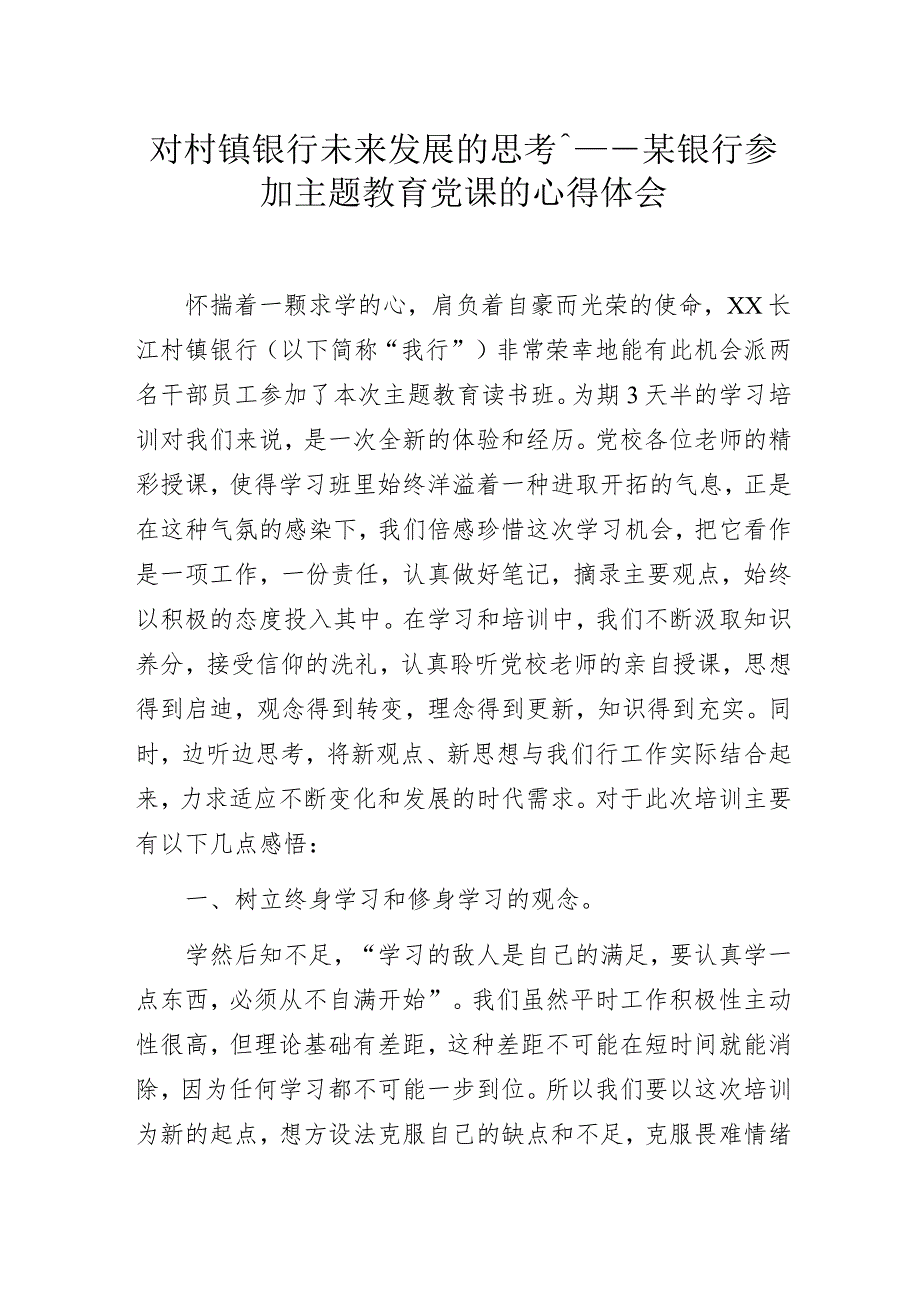 对村镇银行未来发展的思考^——某银行参
加主题教育党课的心得体会
怀揣着一颗求学的心，肩负着自豪而光荣的使命，XX长
江村镇银行（以下简称“我行”）非常荣幸地能有此机会派两
名干部员工参加了本次主题教育读书班。为期3天半的学习培
训对我们来说，是一次全新的体验和经历。党校各位老师的精
彩授课，使得学习班里始终洋溢着一种进取开拓的气息，正是
在这种气氛的感染下，我们倍感珍惜这次学习机会，把它看作
是一项工作，一份责任，认真做好笔记，摘录主要观点，始终
以积极的态度投入其中。在学习和培训中，我们不断汲取知识
养分，接受信仰的洗礼，认真聆听党校老师的亲自授课，思想
得到启迪，观念得到转变，理念得到更新，知识得到充实。同
时，边听边思考，将新观点、新思想与我们行工作实际结合起
来，力求适应不断变化和发展的时代需求。对于此次培训主要
有以下几点感悟：
一、树立终身学习和修身学习的观念。
学然后知不足，“学习的敌人是自己的满足，要认真学一
点东西，必须从不自满开始”。我们虽然平时工作积极性主动
性很高，但理论基础有差距，这种差距不可能在短时间就能消
除，因为任何学习都不可能一步到位。所以我们要以这次培训
为新的起点，想方设法克服自己的缺点和不足，克服畏难情绪